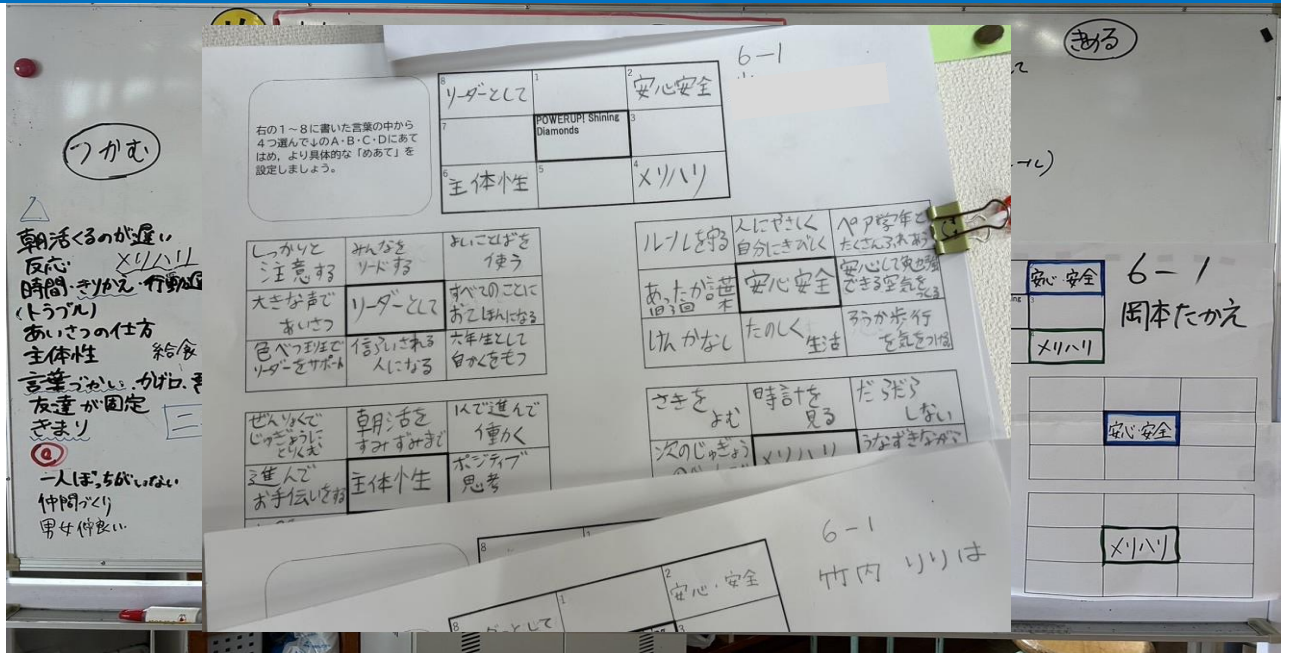 つかむ
朝活くるのが遅い
反応 メリハリ
時間・きりかえ・行動
(トラブル)
あいさつの仕方
主体性 給食
言葉づかい、かげ口、
友達が固定
きまり
一人ぼっちがいない
仲間づくり
男女仲良い
右の1~8に書いた言葉の中から
4つ選んで↓のA・B・C・Dにあて
はめ,より具体的な「めあて」を
設定しましょう。
6-1
8 リーダーとして
1
2 安心安全
7
POWERUP! Shining
Diamonds
3
6 主体性
5
4 メリハリ
しっかりと
注意する
みんなを
リードする
よいことばを
使う
大きな声で
あいさつ
リーダーとして
すべてのことに
おてほんになる
色べつ班で
リーダーをサポート
信らいされる
人になる
六年生として
自かくをもつ
ルールを守る
人にやさしく
自分にきびしく
ペア学年と
たくさんふれあう
あったか言葉
安心安全
安心して勉強
できる空気を
つくる
けんかなし
たのしく
生活
ろうか歩行
を気をつける
ぜんりょくで
じゅぎょうに
とりくむ
朝活を
すみずみまで
1人で進んで
働く
進んで
お手伝いをする
主体性
ポジティブ
思考
さきを
よむ
時計を
見る
だらだら
しない
次のじゅぎょう
メリハリ
うなずきながら
8
6-1
竹内 りりは
1
2 安心・安全
8
ーとして
3
きめる
安心・安全
3
4
メリハリ
6-1
岡本たかえ
安心・安全
メリハリ